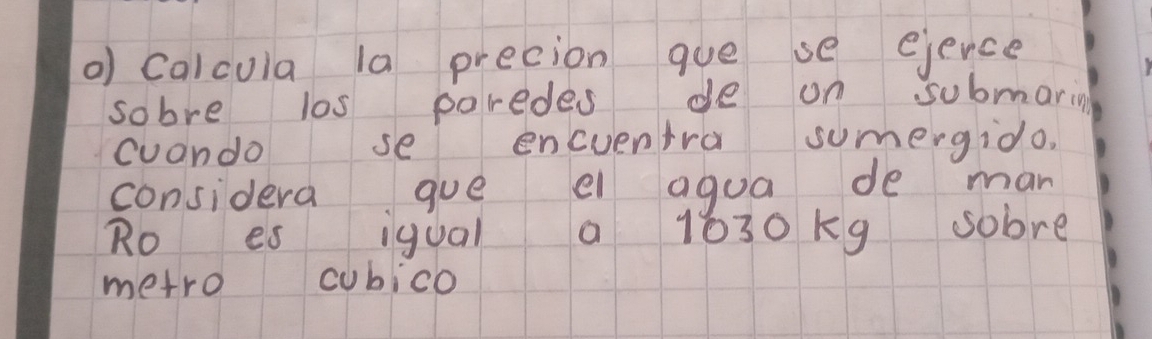 a) Calcula la precion que se ejerce
sobre las paredes de un submarino
cuando se encuentra sumergido.
considera que el agua de mar
Ro es igual a 1030 kg sobre
metro cubico